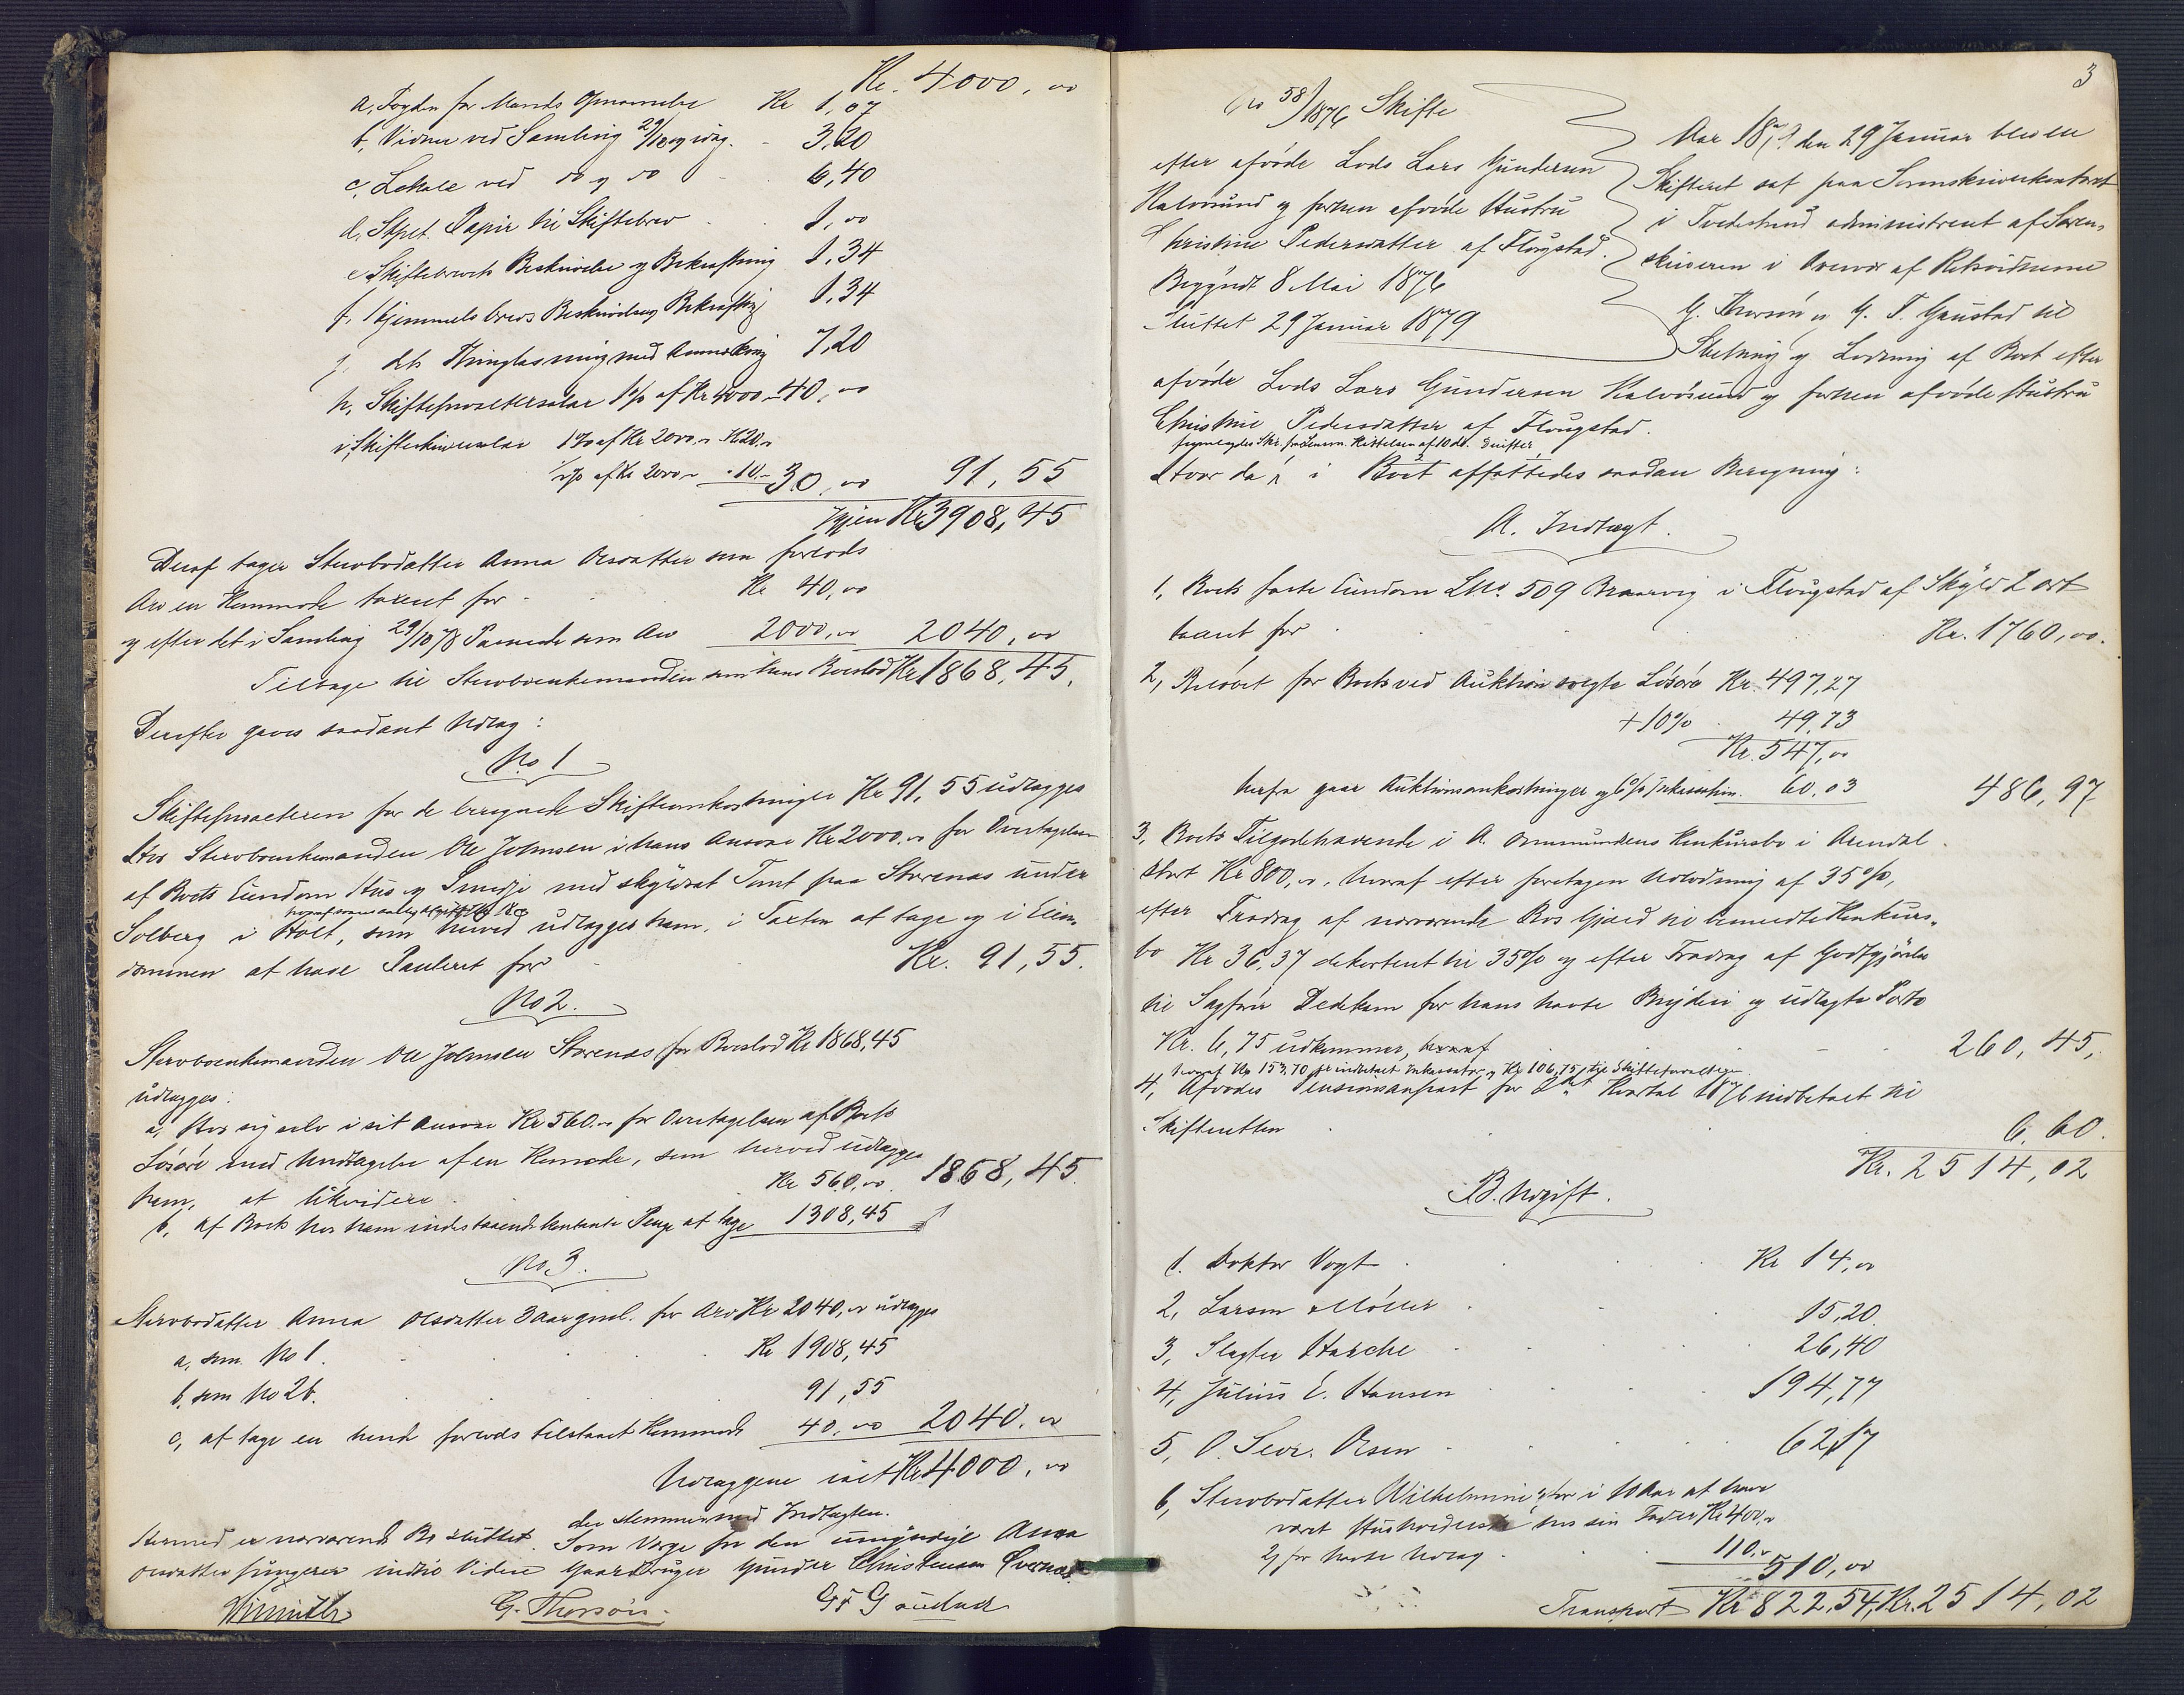 Kr. 4000, 00
a, Fogden for Mænds Opnævnelse Kr 1,07
b, Vidner ved Samling 29/10 og idag. 3,20
c, Lokale ved do og do 6,40
d, Stpet. Papir til Skiftebrev 1,00
e, Skiftebrevets Beskrivelse og Bekræftning 1,34
f, Hjemmelsbrevs Beskrivelse og Bekræftng 1,34
g, dts Thinglæsning med Anmærkning 7,20
h, Skifteforvaltersalær 1% af Kr 4000 - 40,00
i, Skifteskriversalær 1% af Kr 2000,00 Kr 20,00
½% af Kr 2000,00 - 10 - 30,00 91,55
Igjen Kr 3908,45
Deraf tager Stervbodatter Anna Olsdatter som forlods
Arv en Kommode taxeret for Kr 40,00
og efter det i Samling 29/10 78 Passerede som Arv 2000,00 2040,00
Tilbage til Stervboenkemanden som hans Boeslod Kr 1868,45.
Derefter gaves saadant Udlæg:
No 1
Skifteforvalteren for de beregnede Skifteomkostninger Kr 91,55 udlægges
Hos Stervboenkemanden Ole Johnsen i hans Ansvar Kr 2000,00 for Overtagelsen
af Boets Eiendom Hus og Smedje med skyldsat Tomt paa Storenæs under
Solberg i Holt, som herved udlægges ham, i Taxten at tage og i Eien-
dommen at have Panteret for Kr. 91,55.
No 2.
Stervboenkemanden Ole Johnsen Storenæs for Boeslod Kr 1868,45
udlægges:
a, Hos sig selv i sit Ansvar Kr 560,00 for Overtagelsen af Boets
Løsøre med Undtagelse af en Komode, som herved udlægges
ham, at likvidere Kr 560,00 1868,45.
b, af Boets hos ham indestaaende kontante Penge at tage 1308,45
No 3.
Stervbodatter Anna Olsdatter 3 Aar gml. for Arv Kr 2040,00 udlægges
a, som No 1. Kr 1908,45
b, som No 2b. 91,55
c, at tage en hende forlods tilstaaet Kommode 40,00 2040,00
Udlæggene ialt Kr 4000,00
der stemmer med Indtægten.
Hermed er nærværende Bo sluttet. Som Verge for den umyndige Anna
Olsdatter fungerer indtil Videre Gaardbruger Gunder Christensen
G. Thorsøn. G F Gaustad
3
No 58/1876 Skifte
efter afdøde Lods Lars Gundersen
Kalvøsund og forhen afdøde Hustru
Christine Pedersdatter af Flougstad.
Begyndt 8 Mai 1876
Sluttet 29 Januar 1879
Aar 1879 den 29 Januar blev en
Skifteret sat paa Sorenskriverkontoret
i Tvedestrand administreret af Soren-
skriveren i Overvær af Retsvidnerne
G. Thorsøn og G. F. Gaustad til
Slutning og Lodning af Boet efter
afdøde Lods Lars Gundersen Kalvøsund og forhen afdøde Hustru
Christine Pedersdatter af Flougstad.
fremlagdes Skr. fra Lensm. Kittelsen af 10 ds.
Hvor da i Boet affattedes saadan Beregning:
A. Indtægt.
1, Boets faste Eiendom LNo. 509 Braarvig i Flougstad af Skyld 2 ort
taxeret for Kr. 1760,00.
2, Beløbet for Boets ved Auktion solgte Løsøre Kr. 497,27
+10% 49,73
Kr. 547,00
herfra gaar Auktionsomkostninger og 6% Inkassation. 60,03 486,97
3, Boets Tilgodehavende i A. Ommundsens Konkursbo i Arendal
stort Kr 800,00, hvoraf efter foretagen Udlodning af 35%,
efter Fradrag af nærværende Bos Gjæld til bemeldte Konkurs-
bo Kr 36,37 dekorteret til 35% og efter Fradrag af Godtgjørelse
til Sagfører Dedekam for hans havte Bryderi og udlagte Porto
Kr. 6,75 udkommer, 260,45,
hvoraf Kr 153,70 er indbetalt Inkassator og Kr 106,75 til Skifteforvalteren
4, Afdødes Pensionsanpart for 2det Kvartal 1876 indbetalt til
Skifteretten 6,60.
Kr. 2514,02
B. Udgift.
1. Doktor Vogt Kr 14,00
2, Larsen Møller 15,20.
3, Slagter Hasche 26,40
4, Julius E. Hansen 194,77
5, O. Sevr. Olsen 62,17
6, Stervbodatter Wilhelmine for i 10 Aar at have
været Husholderske hos sin Fader Kr 400,00
2, for havte Udlæg 110,00 510,00
Transport Kr 822,54, Kr. 2514,02